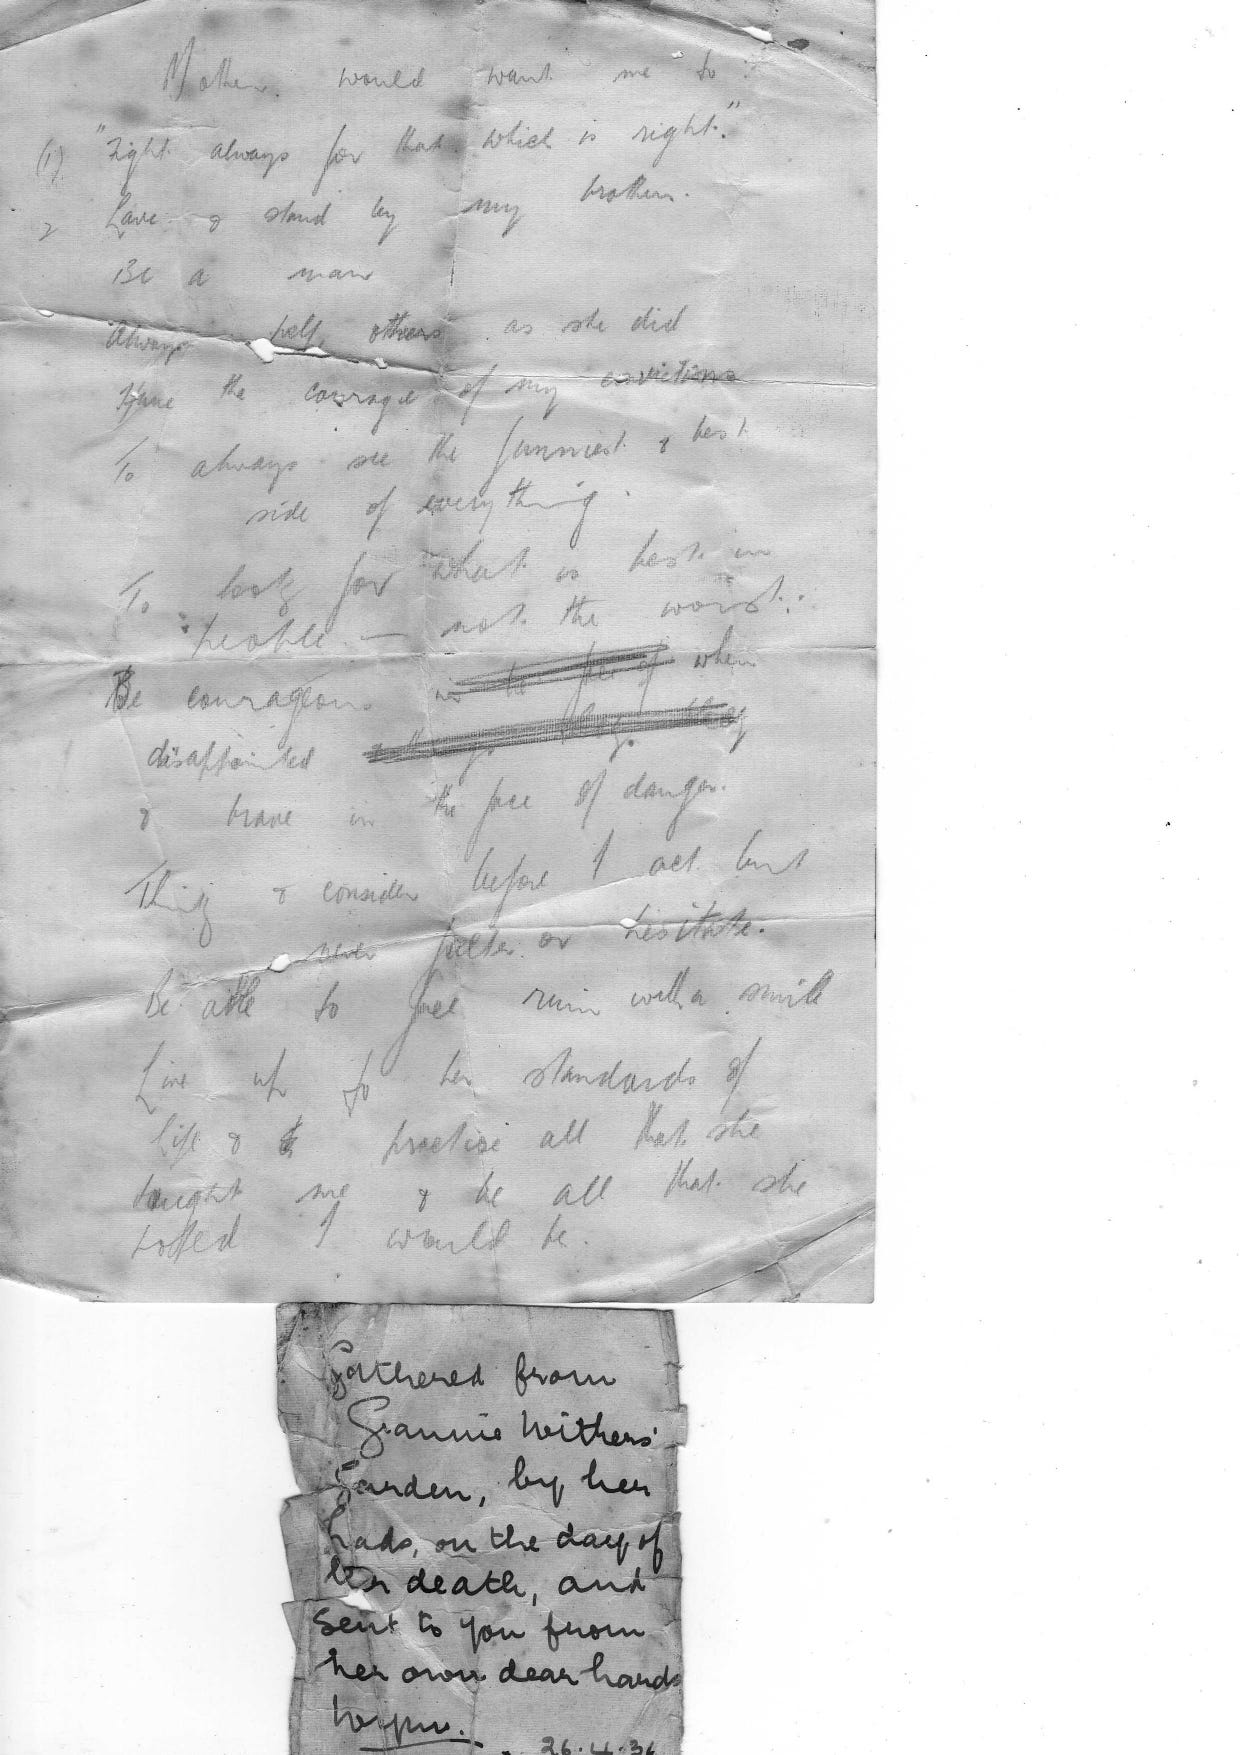 Mother would want me to :
(1) "Fight always for that which is right."
2 Love & stand by my brothers.
Be a man
Always help others as she did
Have the courage of my convictions
To always see the funniest & best
side of everything.
To look for what is best in
people — not the worst.
Be courageous in the face of when
disappointed
& brave in the face of danger.
Think & consider before I act but
never falter or hesitate.
Be able to face ruin with a smile
Live up to her standards of
life & practise all that she
taught me & be all that she
hoped I would be.
Gathered from
Jeannie Withers'
Garden, by her
lads, on the day of
her death, and
sent to you from
her own dear hands
26.4.36